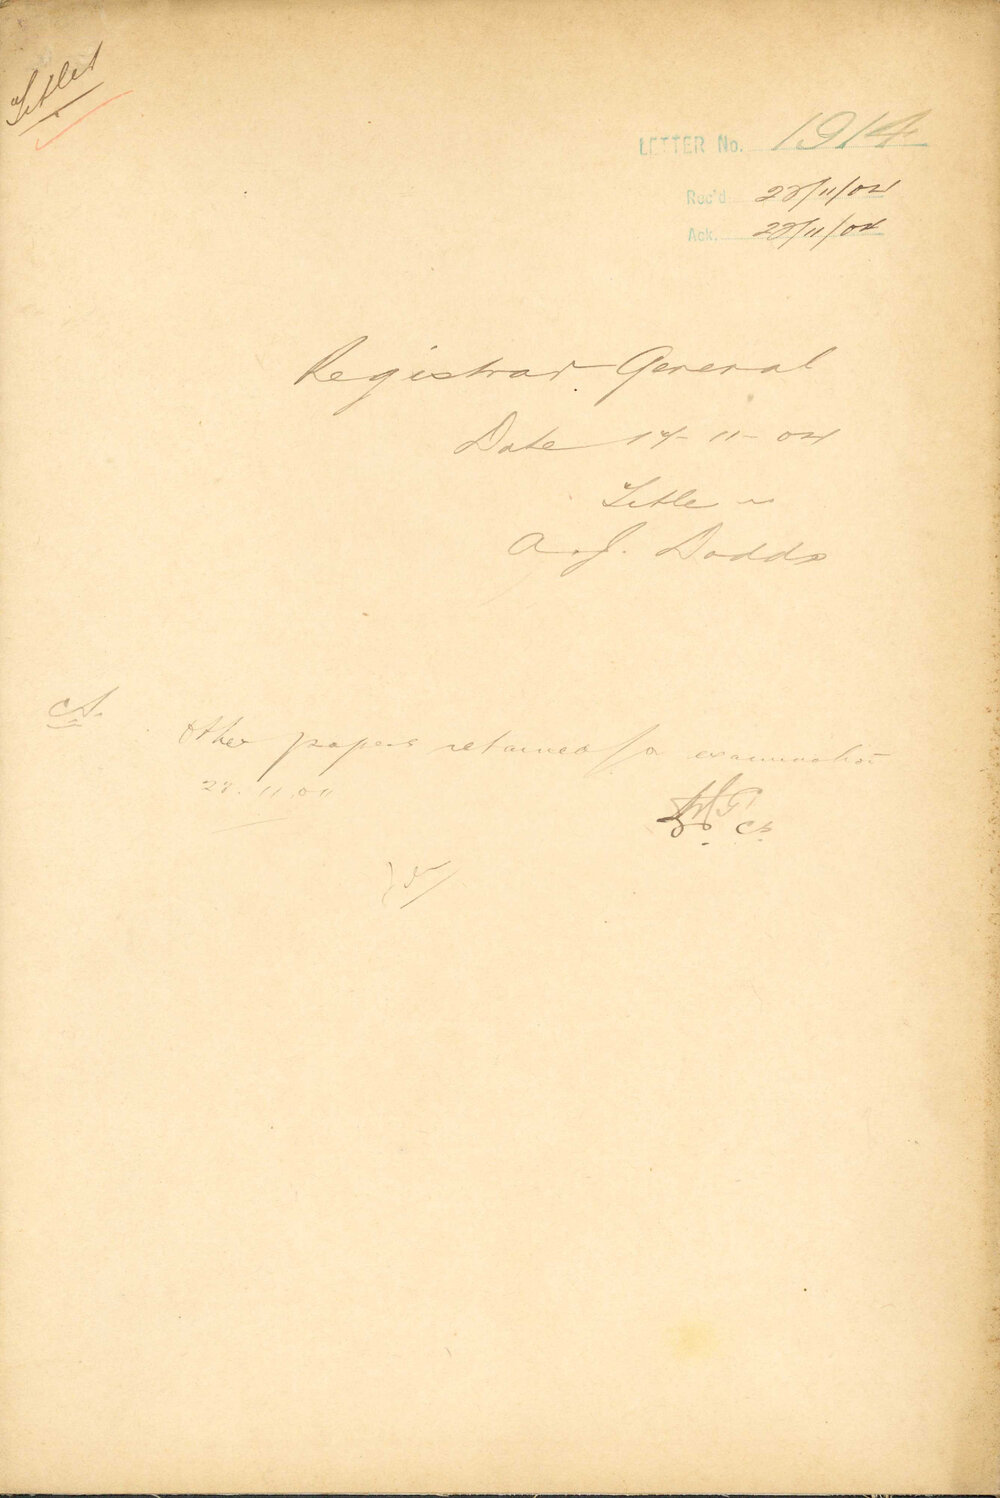 Titles
LETTER No. 1914
Rec'd 28/11/04
Ack. 28/11/04
Registrar General
Date 14-11-04
Title
A. J. Dodds
Other papers retained for examination
28.11.04